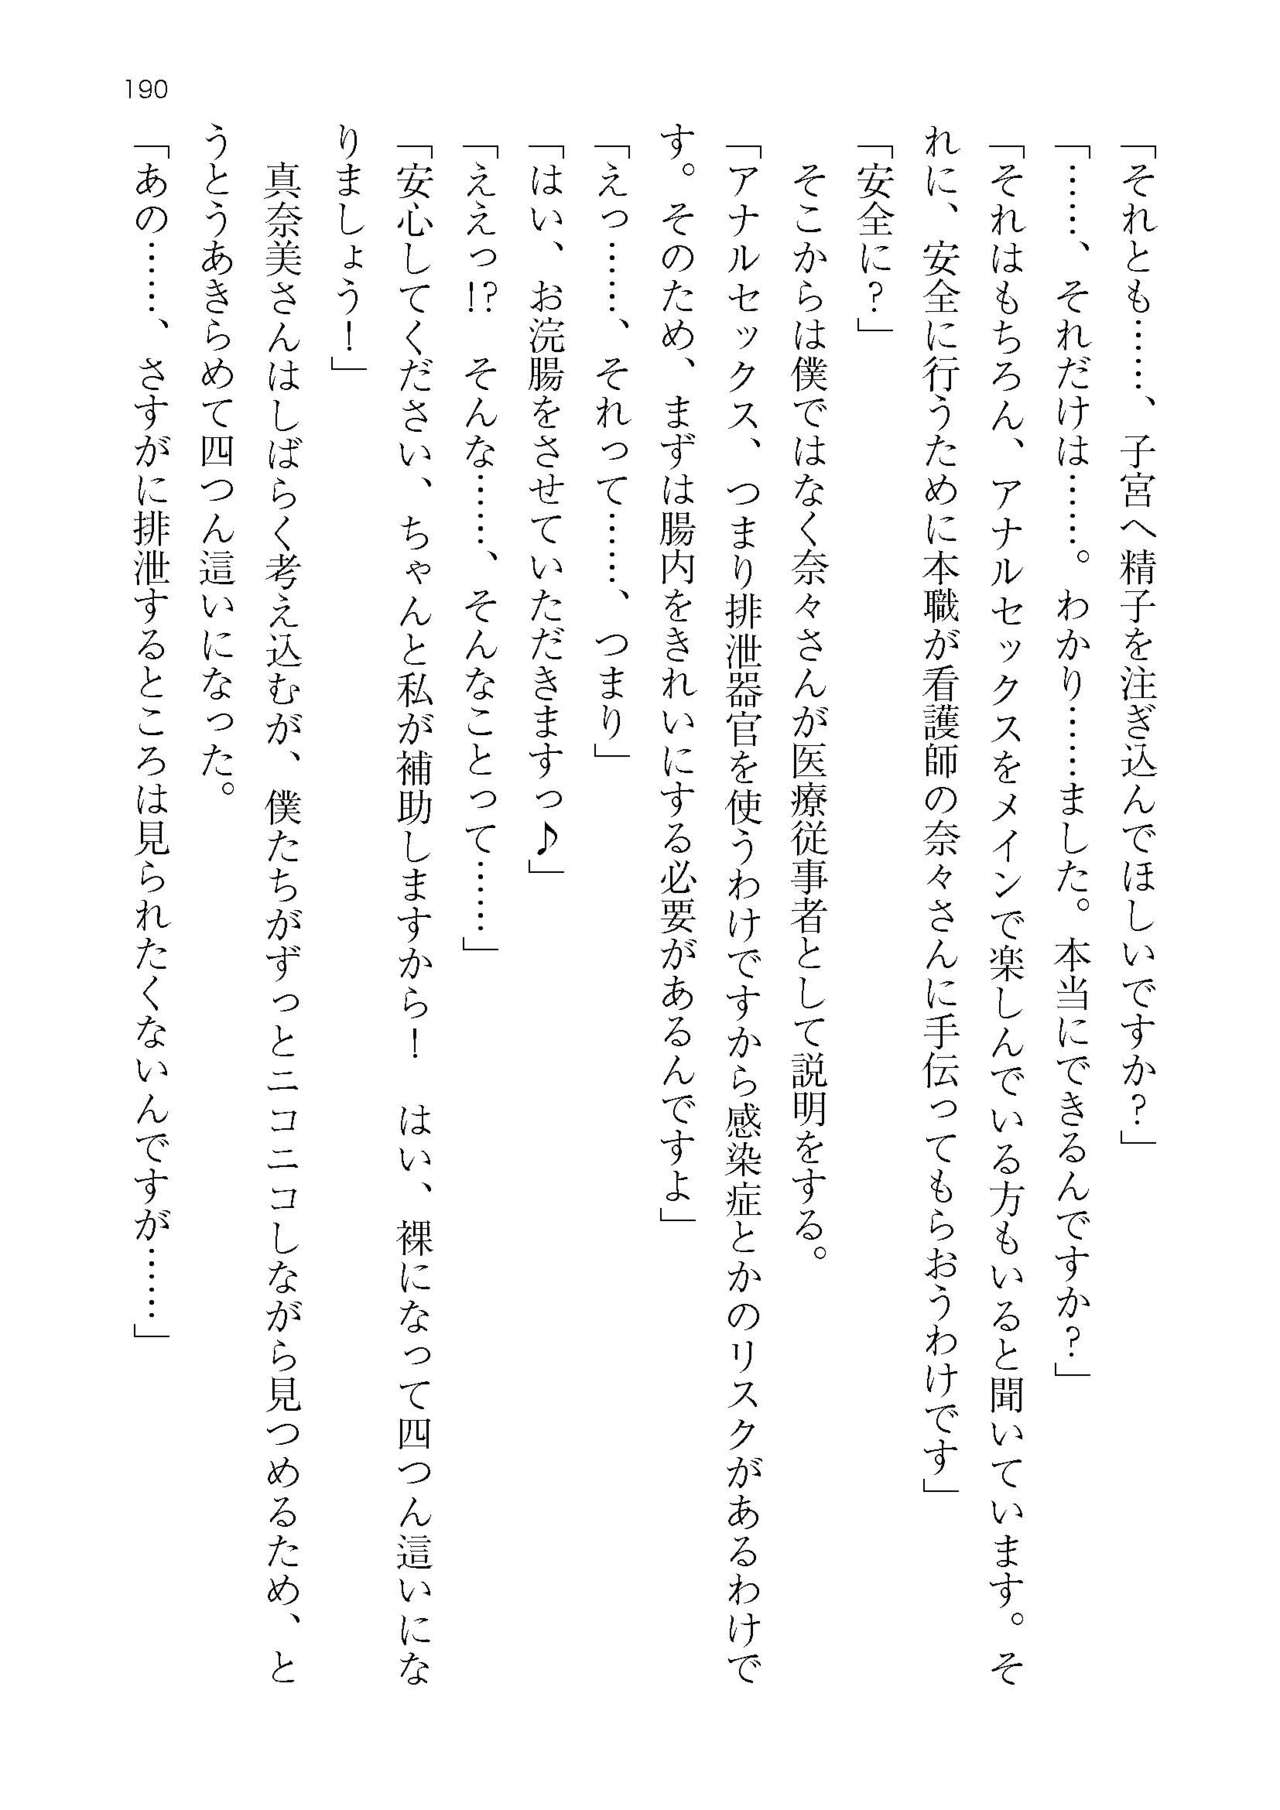 190
「それとも……、子宮へ精子を注ぎ込んでほしいですか？」
「……、それだけは……。わかり……ました。本当にできるんですか？」
「それはもちろん、アナルセックスをメインで楽しんでいる方もいると聞いています。そ
れに、安全に行うために本職が看護師の奈々さんに手伝ってもらおうわけです」
「安全に？」
　そこからは僕ではなく奈々さんが医療従事者として説明をする。
「アナルセックス、つまり排泄器官を使うわけですから感染症とかのリスクがあるわけで
す。そのため、まずは腸内をきれいにする必要があるんですよ」
「えっ……、それって……、つまり」
「はい、お浣腸をさせていただきますっ♪」
「ええっ!?　そんな……、そんなことって……」
「安心してください、ちゃんと私が補助しますから！　はい、裸になって四つん這いにな
りましょう！」
　真奈美さんはしばらく考え込むが、僕たちがずっとニコニコしながら見つめるため、と
うとうあきらめて四つん這いになった。
「あの……、さすがに排泄するところは見られたくないんですが……」